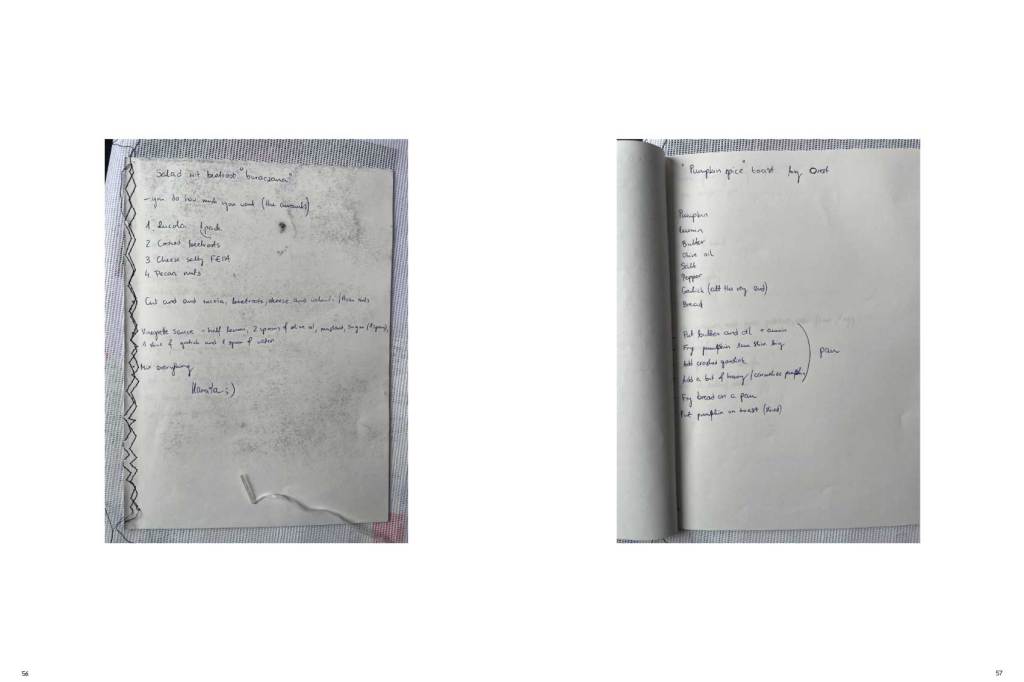 Salad wit beetroot "buraczana"
- you do how much you want (the amounts)
1. Rucola 1 pack
2. Cooked beetroots
3. Cheese salty FETA
4. Pecan nuts
Cut and add rucola, beetroots, cheese and
Vinegrete sauce - half lemon, 2 spoons of olive oil, mustard, sugar (1 spoon),
1 slice of garlick and 1 spoon of water
Mix everything
"Pumpkin spice" toast by Orest
Pumpkin
Butter
Olive oil
Salt
Pepper
Garlick (all the way)
Bread
Put butter and oil +
Fry pumpkin
Add crushed garlick
Add a bit of honey / caramelize pumpkin
pan
Fry bread on a pan
Put pumpkin on toast
56
57